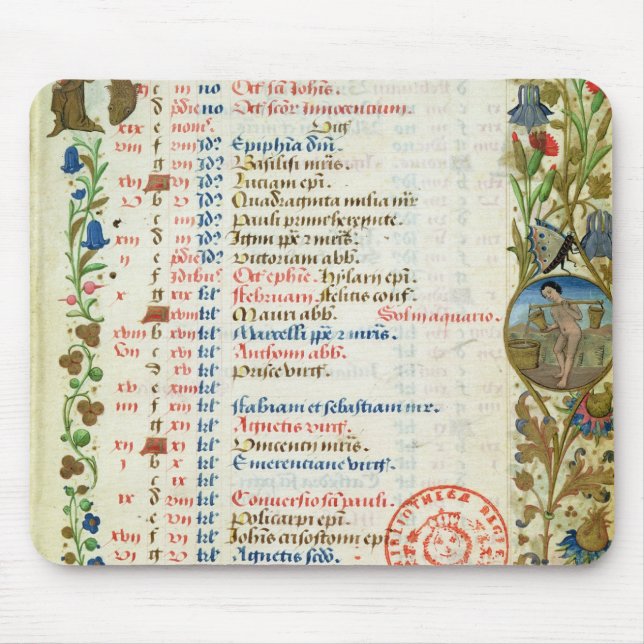 c iii no Oct̄ sc̄i Joh̄is.
d p̄die no Oct̄ sc̄or Innocentium.
xix e nonas
viii f viii Id9 Epiphīa dn̄i.
g vii Id9 Basilissi mr̄is.
xvi A vi Id9 Luciani ep̄i.
v b v Id9 Quadraginta milia mr̄
c iiii Id9 Pauli primi heremite.
xiii d iii Id9 p̄p̄e 2 mr̄is.
ii e p̄die Id9 Victoriani abb.
f Idibus Oct̄ ephīe. hylarii ep̄i.
x g xix kl̄ februarii felicis conf.
A xviii kl̄ Mauri abb. Sol in aquario.
xviii b xvii kl̄ Marcelli p̄p̄e 2 mr̄is.
vii c xvi kl̄ Anthonii abb.
d xv kl̄ Prisce virḡ.
xv e xiiii kl̄
iiii f xiii kl̄ Fabiani et sebastiani mr̄.
g xii kl̄ Agnetis virḡ.
xii A xi kl̄ Vincentii mr̄is.
i b x kl̄ Emerentiane virḡ.
c ix kl̄
ix d viii kl̄ Conversio sc̄i pauli.
e vii kl̄ Policarpi ep̄i.
xvii f vi kl̄ Joh̄is crisostomi ep̄i
vi g v kl̄ Agnetis sc̄do.
BIBLIOTHECÆ REGIÆ